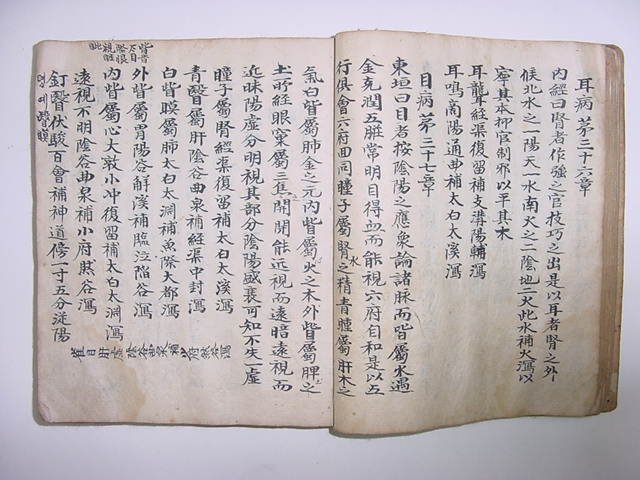 耳病苐三十六章
內經曰腎者作強之官技巧之出是以耳者腎之外
候北水之一陽天一水南火之二陰地二火此水補火瀉以
寧其本抑官制邪以平其木
耳聾經渠復留補支溝陽輔瀉
耳鳴商陽通曲補太白太溪瀉
目病苐三十七章
東垣曰目者按陰陽之應衆論諸脉而皆屬水遇
金克潤五臟常明目得血而能視六府自和是以五
行俱會六府面同瞳子屬腎水之精青瞳屬肝木之
氣白皆屬肺金之元內皆屬火之木外皆屬脾之
土所經眼窠屬三焦開開能近視而遠暗遠視而
近昧陽虛分明視其部分陰陽盛衰可知不失一虛
瞳子屬腎經渠復留補太白太溪瀉
青瞖屬肝陰谷曲泉補經渠中封瀉
白皆膜屬肺太白太淵補魚際大都瀉
外皆屬胃陽谷解溪補臨泣陷谷瀉
內皆屬心大敦小冲復留補太白太淵瀉
遠視不明陰谷曲泉補小府肰谷瀉
釘瞖伏睃百會補神道傍一寸五分從陽